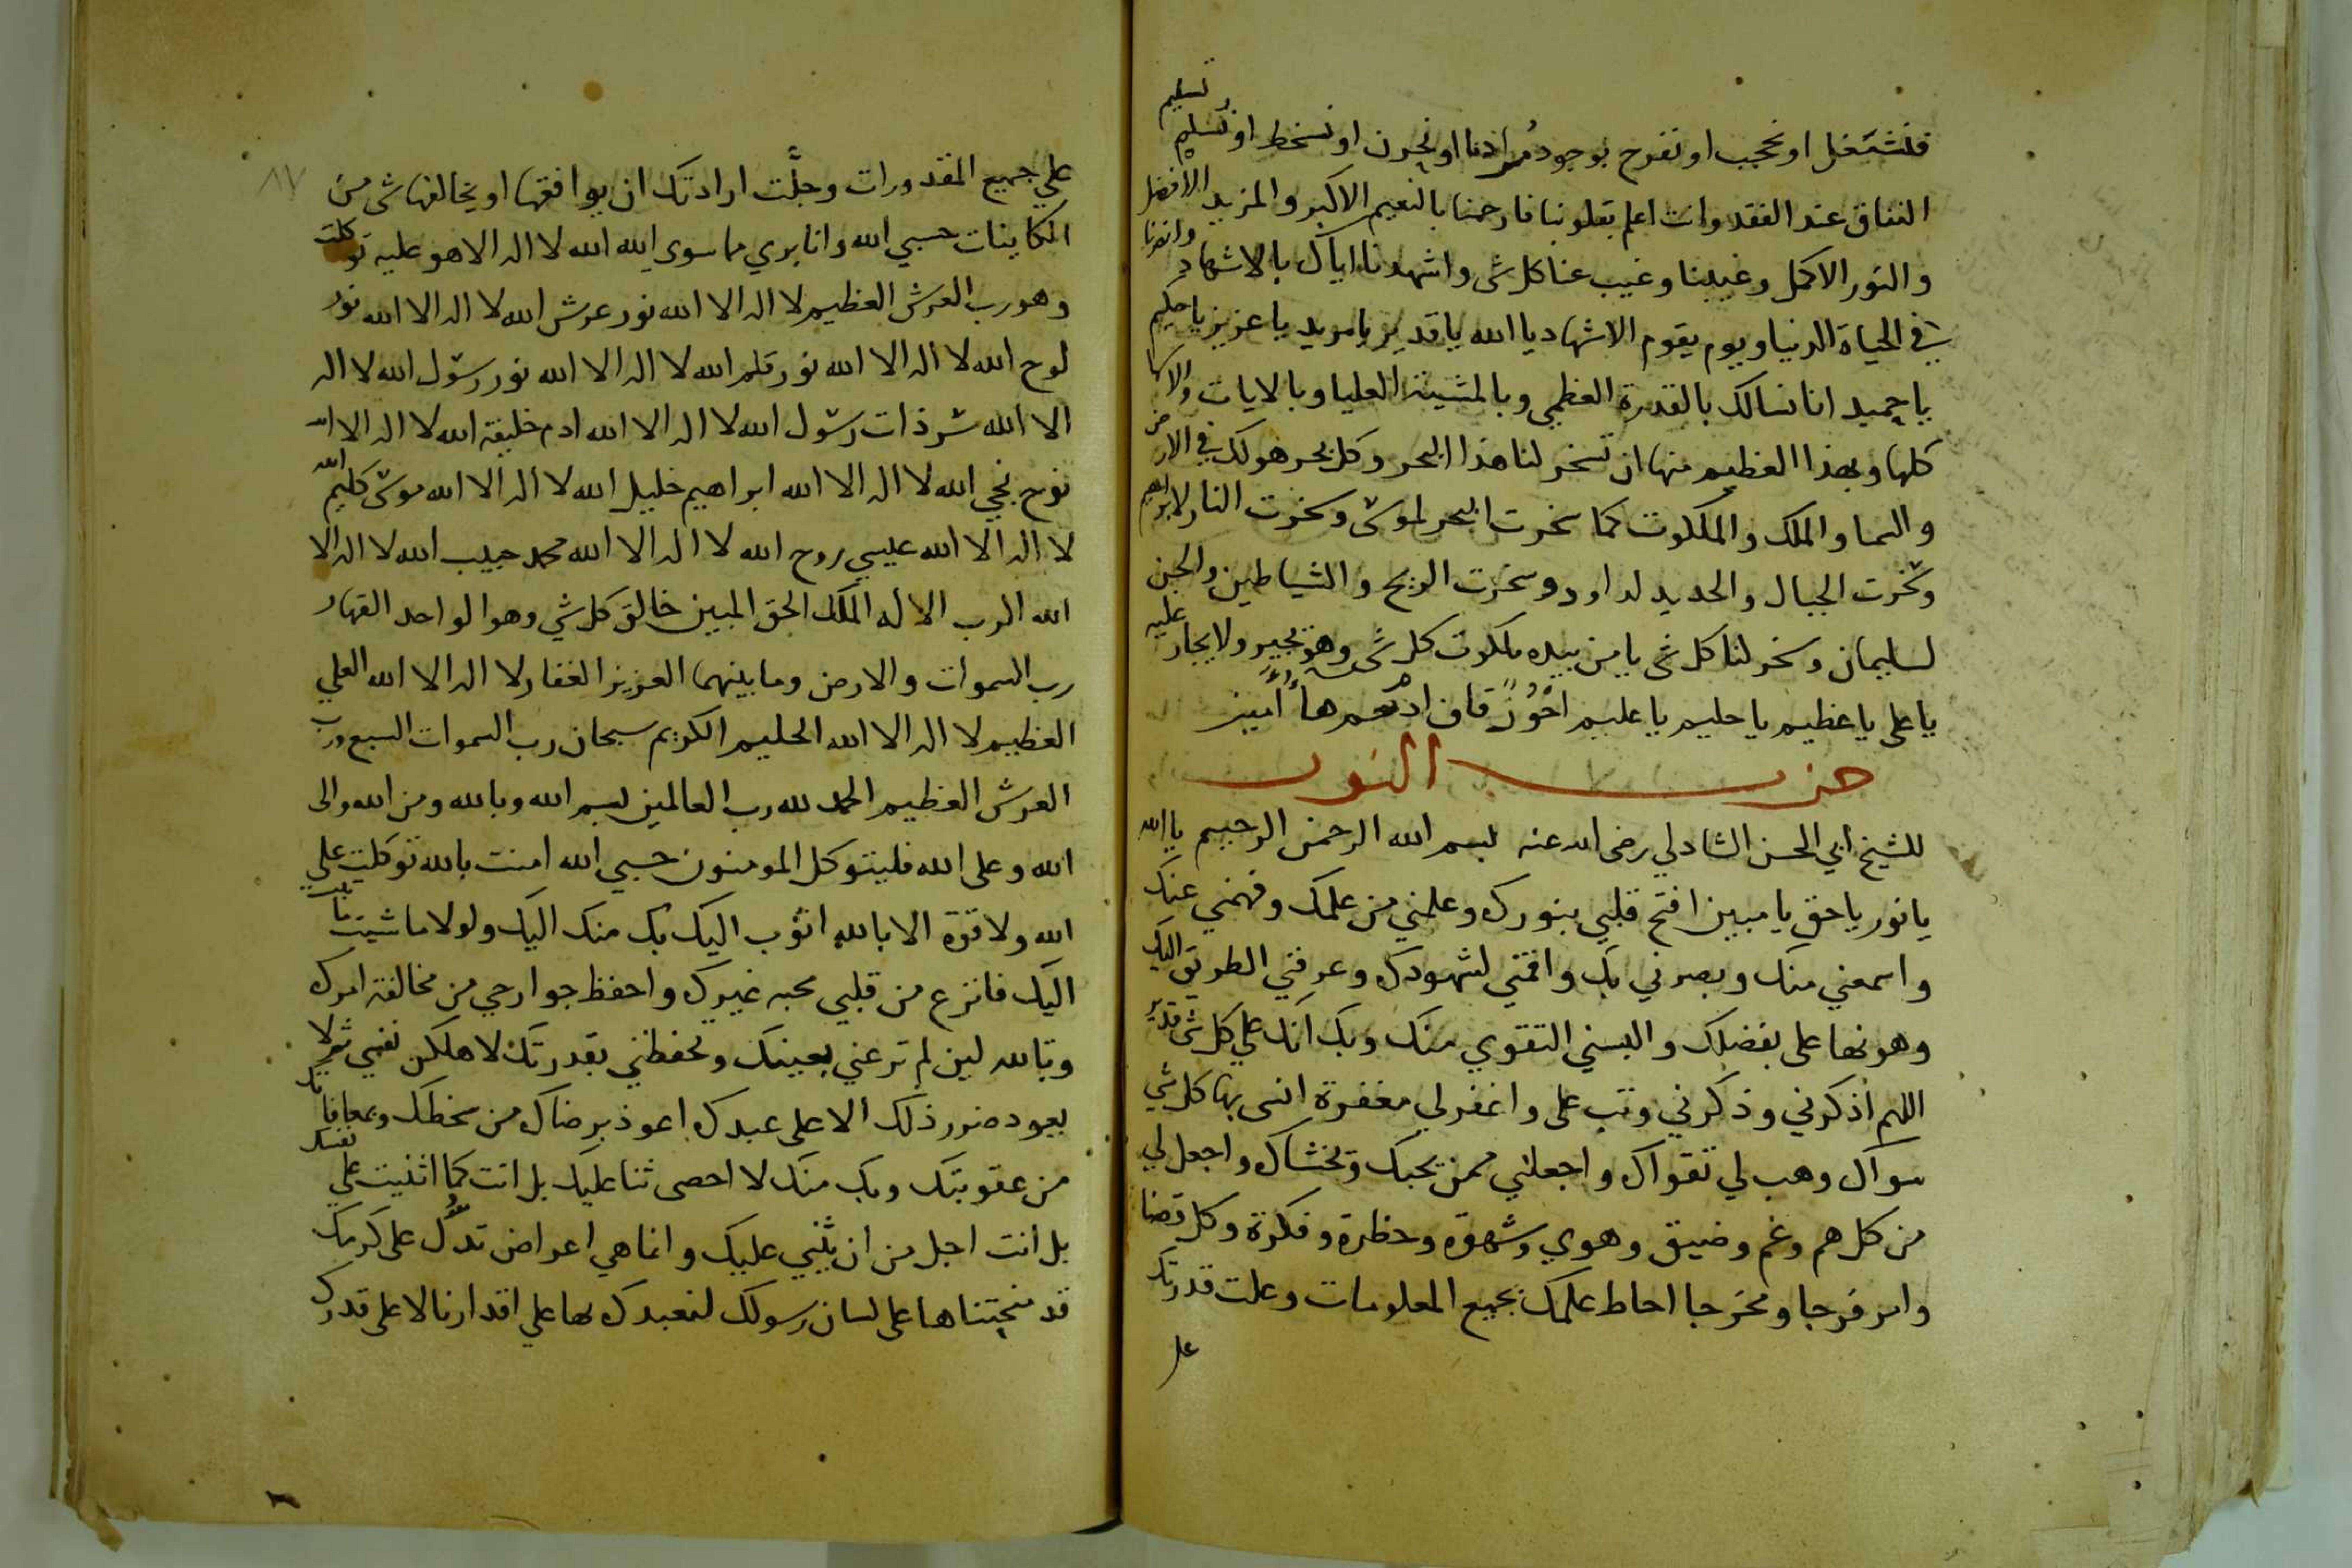 فنشتغل او نحجب او نفرح بوجود مرادنا او نحزن او نسخط او نسلم تسليم
النفاق عند الفقد وانت اعلم بقلوبنا فارحمنا بالنعيم الاكبر والمزيد الافضل
والنور الاكمل وغيبنا وغيب عنا كل شى واشهدنا اياك بالاشهاد وانصرنا
في الحياة الدنيا ويوم يقوم الاشهاد يا الله يا قدير يا مريد يا عزيز يا حكيم
يا حميد انا نسالك بالقدرة العظمي وبالمشيئة العليا وبالايات والاسما
كلها وبهذا العظيم منها ان تسخر لنا هذا البحر وكل بحر هو لك في الارض
والسما والملك والملكوت كما سخرت البحر لموسى وسخرت النار لابراهيم
وسخرت الجبال والحديد لداود وسخرت الريح والشياطين والجن
لسليمان وسخر لنا كل شى يا من بيده ملكوت كل شى وهو يجير ولا يجار عليه
يا على يا عظيم يا حليم يا عليم احون قاف ادم حم هاء امين
حزب النور
للشيخ ابي الحسن الشادلي رضى الله عنه بسم الله الرحمن الرحيم يا الله
يا نور يا حق يا مبين افتح قلبي بنورك وعلمني من علمك وفهمني عنك
واسمعني منك وبصرني بك واقمني لشهودك وعرفني الطريق اليك
وهونها على بفضلك والبسني التقوي منك وبك انك علي كل شى قدير
اللهم اذكرني وذكرني وتب على واغفرلي مغفرة انسى بها كل شي
سواك وهب لي تقواك واجعلني ممن يحبك ويخشاك واجعل لي
من كل هم وغم وضيق وهوي وشهوة وخطرة وفكرة وكل قضا
وامر فرجا ومخرجا احاط علمك بجميع المعلومات وعلت قدرتك
على
٨٧
علي جميع المقدورات وجلَّت ارادتك ان يوافقها او يخالفها شى من
الكاينات حسبي الله وانا بري مما سوى الله الله لا اله الا هو عليه توكلت
وهو رب العرش العظيم لا اله الا الله نور عرش الله لا اله الا الله نور
لوح الله لا اله الا الله نور قلم الله لا اله الا الله نور رسول الله لا اله
الا الله سر ذات رسول الله لا اله الا الله ادم خليفة الله لا اله الا الله
نوح نجي الله لا اله الا الله ابراهيم خليل الله لا اله الا الله موسى كليم الله
لا اله الا الله عيسي روح الله لا اله الا الله محمد حبيب الله لا اله الا
الله الرب الاله الملك الحق المبين خالق كل شي وهو الواحد القهار
رب السموات والارض وما بينهما العزيز الغفار لا اله الا الله العلي
العظيم لا اله الا الله الحليم الكريم سبحان رب السموات السبع ورب
العرش العظيم الحمد لله رب العالمين بسم الله وبالله ومن الله والى
الله وعلى الله فليتوكل المومنون حسبي الله امنت بالله توكلت علي
الله ولا قوة الا بالله اتوب اليك بك منك اليك ولولا ما شيت ما تبت
اليك فانزع من قلبي محبه غيرك واحفظ جوارحي من مخالفة امرك
وتالله لين لم ترعني بعينك وتحفظني بقدرتك لاهلكن نفسي ثم لا
يعود ضرر ذلك الا على عبدك اعوذ برضاك من سخطك وبمعافاتك
من عقوبتك وبك منك لا احصى ثنا عليك بل انت كما اثنيت علي نفسك
بل انت اجل من ان يثني عليك وانما هي اعراض تدل على كرمك
قد منحتناها على لسان رسولك لنعبدك بها علي اقدارنا لا على قدرك